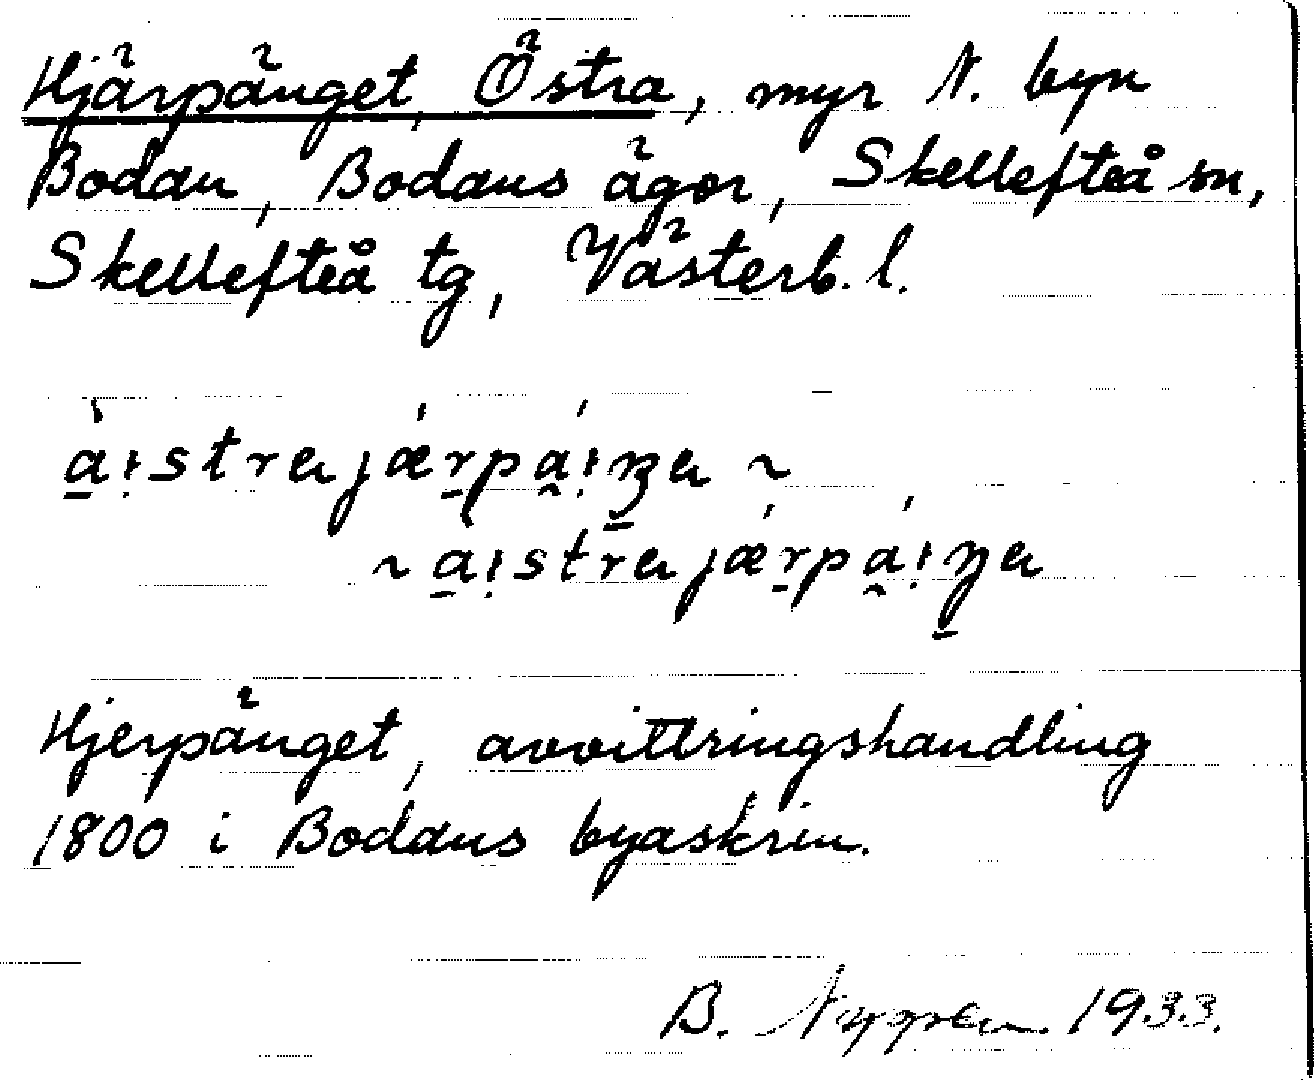 Hjärpänget, Östra, myr N. byn
Bodan, Bodans ägor, Skellefteå sn,
Skellefteå tg, Västerb. l.
Hjerpänget, avvittringshandling
1800 i Bodans byaskrin.
B. 1933.